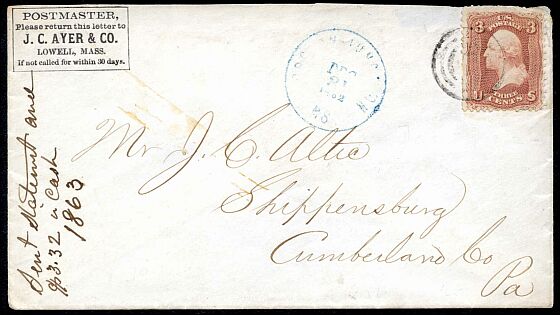 POSTMASTER,
Please return this letter to
J. C. AYER & CO.
LOWELL, MASS.
if not called for within 30 days.
3 U.S. POSTAGE 3
U THREE S
CENTS
DEC
21
Mr J. C. Altic
Shippensburg
Cumberland Co
Pa
Sent Statement and
$3.32 in Cash
1863